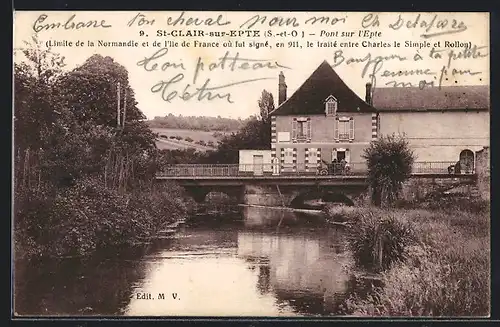 9. St-CLAIR-sur-EPTE (S.-et-O.) - Pont sur l'Epte
(Limite de la Normandie et de l'Ile de France où fut signé, en 911, le traité entre Charles le Simple et Rollon)
Embrasse ton cheval pour moi
Ch Delafare
Bonjour à ta petite
Ton poteau
cousine pour moi
Edit. M V.